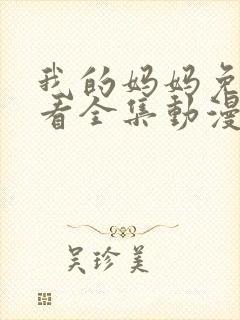 我的妈妈免
看全集動漫
吴珍美